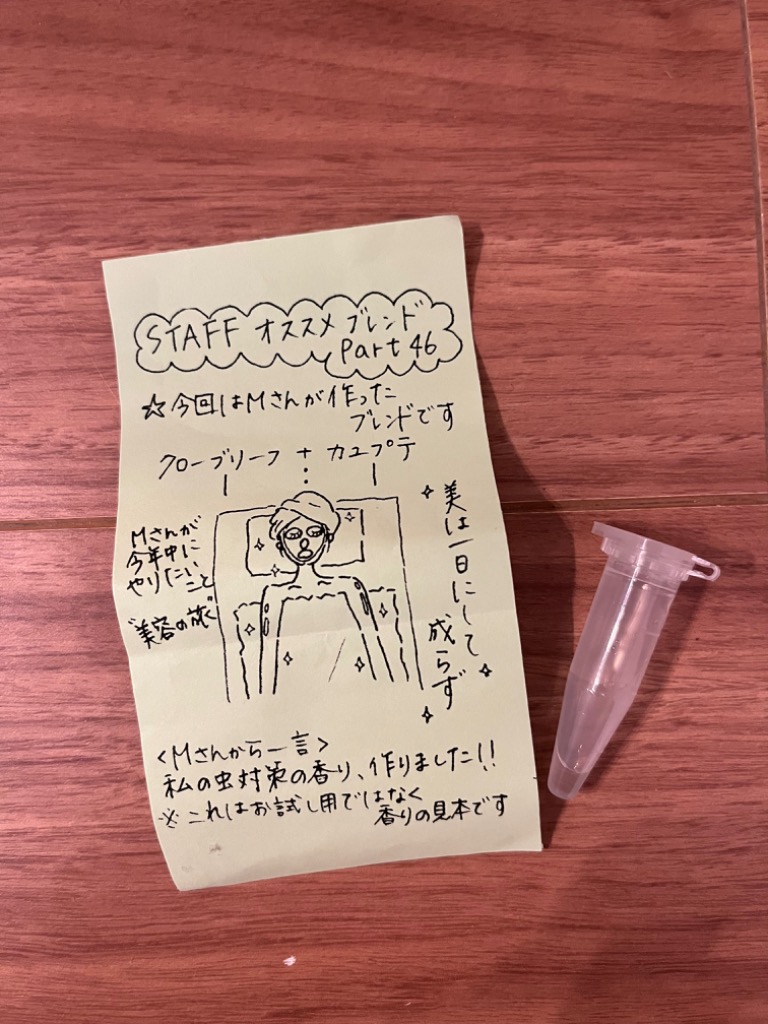 STAFF オススメ ブレンド
Part 46
☆今回はMさんが作った
ブレンドです
クローブリーフ + カユプテ
Mさんが
今年中に
やりたい
こと
"美容の旅"
美は一日にして
成らず
<Mさんから一言>
私の虫対策の香り、作りました!!
※これはお試し用ではなく
香りの見本です